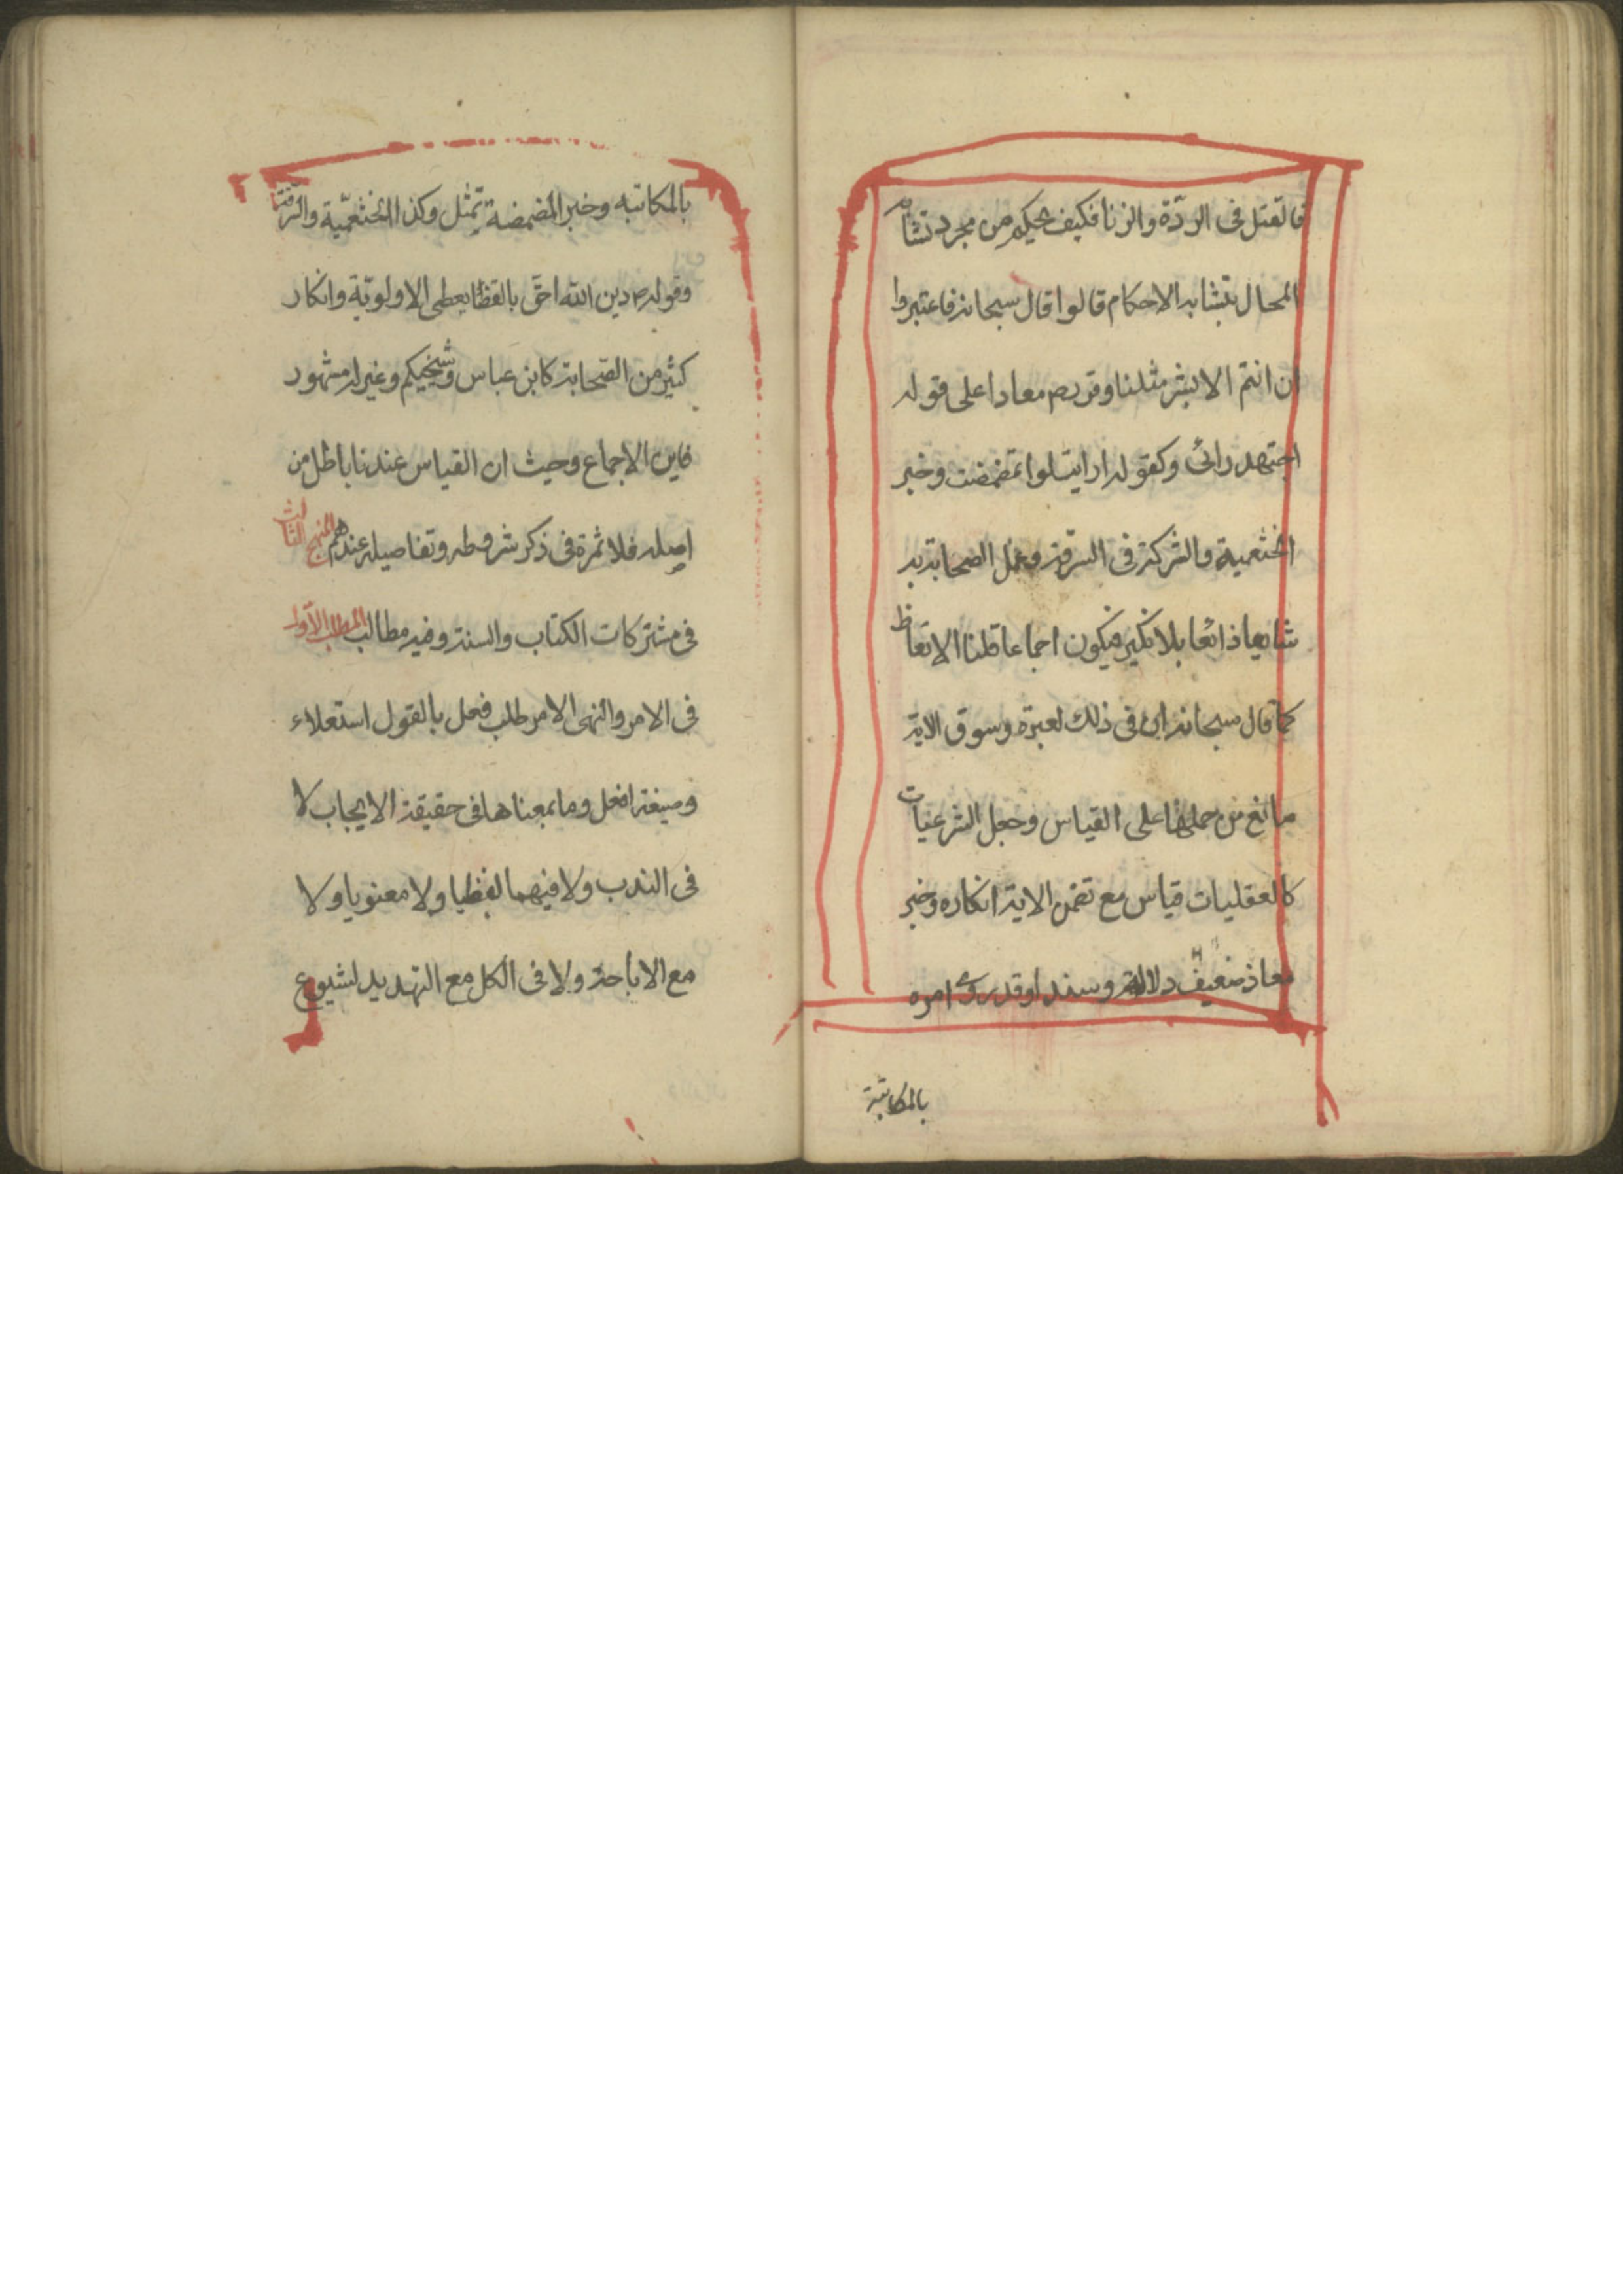 فالقتل فى الردّة والزنا فكيف يحكم من مجرد تشابه
المحال بتشابه الاحكام قالوا قال سبحانه فاعتبروا
ان انتم الا بشر مثلنا وقرر ص معاذا على قوله
اجتهد رائى وكقوله ارايت لو تمضمضت وخبر
الخثعمية والشركة فى السرقة وعمل الصحابة به
شايعا ذائعا بلا نكير فيكون اجماعا قلنا الاتعاظ
كما قال سبحانه ان فى ذلك لعبرة وسوق الاية
مانع من حملها على القياس وجعل الشرعيات
كالعقليات قياس مع تضمن الاية انكاره وخبر
معاذ ضعيف دلالة وسندا وقد روى امره
بالمكاتبة
بالمكاتبه وخبر المضمضة تمثل وكذا الخثعميّة والسرقة
وقوله ص دين الله احقّ بالقضا يعطى الاولويّة وانكار
كثير من الصّحابة كابن عباس وشيخيكم وغيرهم مشهور
فاين الاجماع وحيث ان القياس عندنا باطل من
اصله فلا ثمرة فى ذكر شروطه وتفاصيله عندهم المنهج الثالث
فى مشتركات الكتاب والسنة وفيه مطالب المطلب الاوّل
فى الامر والنهى الامر طلب فعل بالقول استعلاء
وصيغة افعل وما بمعناها فى حقيقة الايجاب لا
فى الندب ولا فيهما لفظيا ولا معنويا ولا
مع الاباحة ولا فى الكل مع التهديد لشيوع